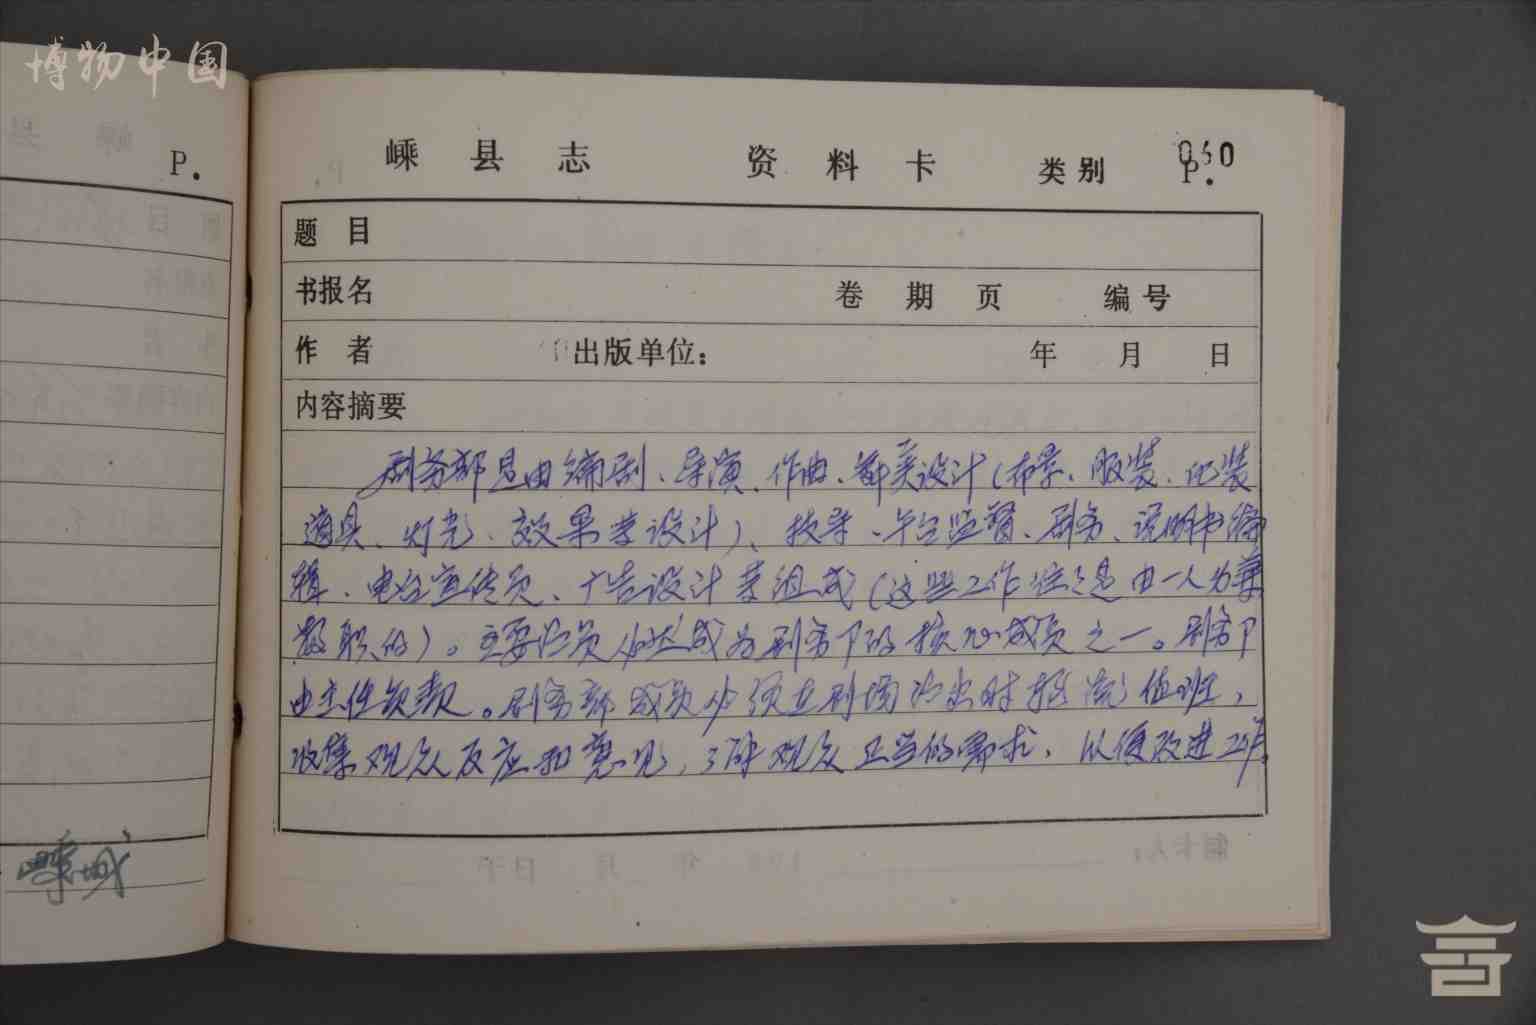 博物中国
P.
嵊县志 资料卡 类别 P.
题目
书报名 卷 期 页 编号
作者 出版单位： 年 月 日
内容摘要
剧务部是由编剧、导演、作曲、舞美设计（布景、服装、化装
道具、灯光、效果等设计）、技导、舞台监督、剧务、说明书编
辑、电台宣传员、广告设计等组成（这些工作往往是由一人为兼
数职的）。主要演员必然成为剧务下的核心成员之一。剧务下
由主任负责。剧务部成员必须在剧场演出时轮流值班，
收集观众反应和意见，了解观众正当的需求，以便改进工作。
嵊城